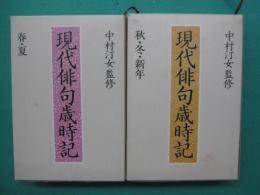 中村汀女監修
現代俳句歳時記
春・夏
中村汀女監修
現代俳句歳時記
秋・冬・新年